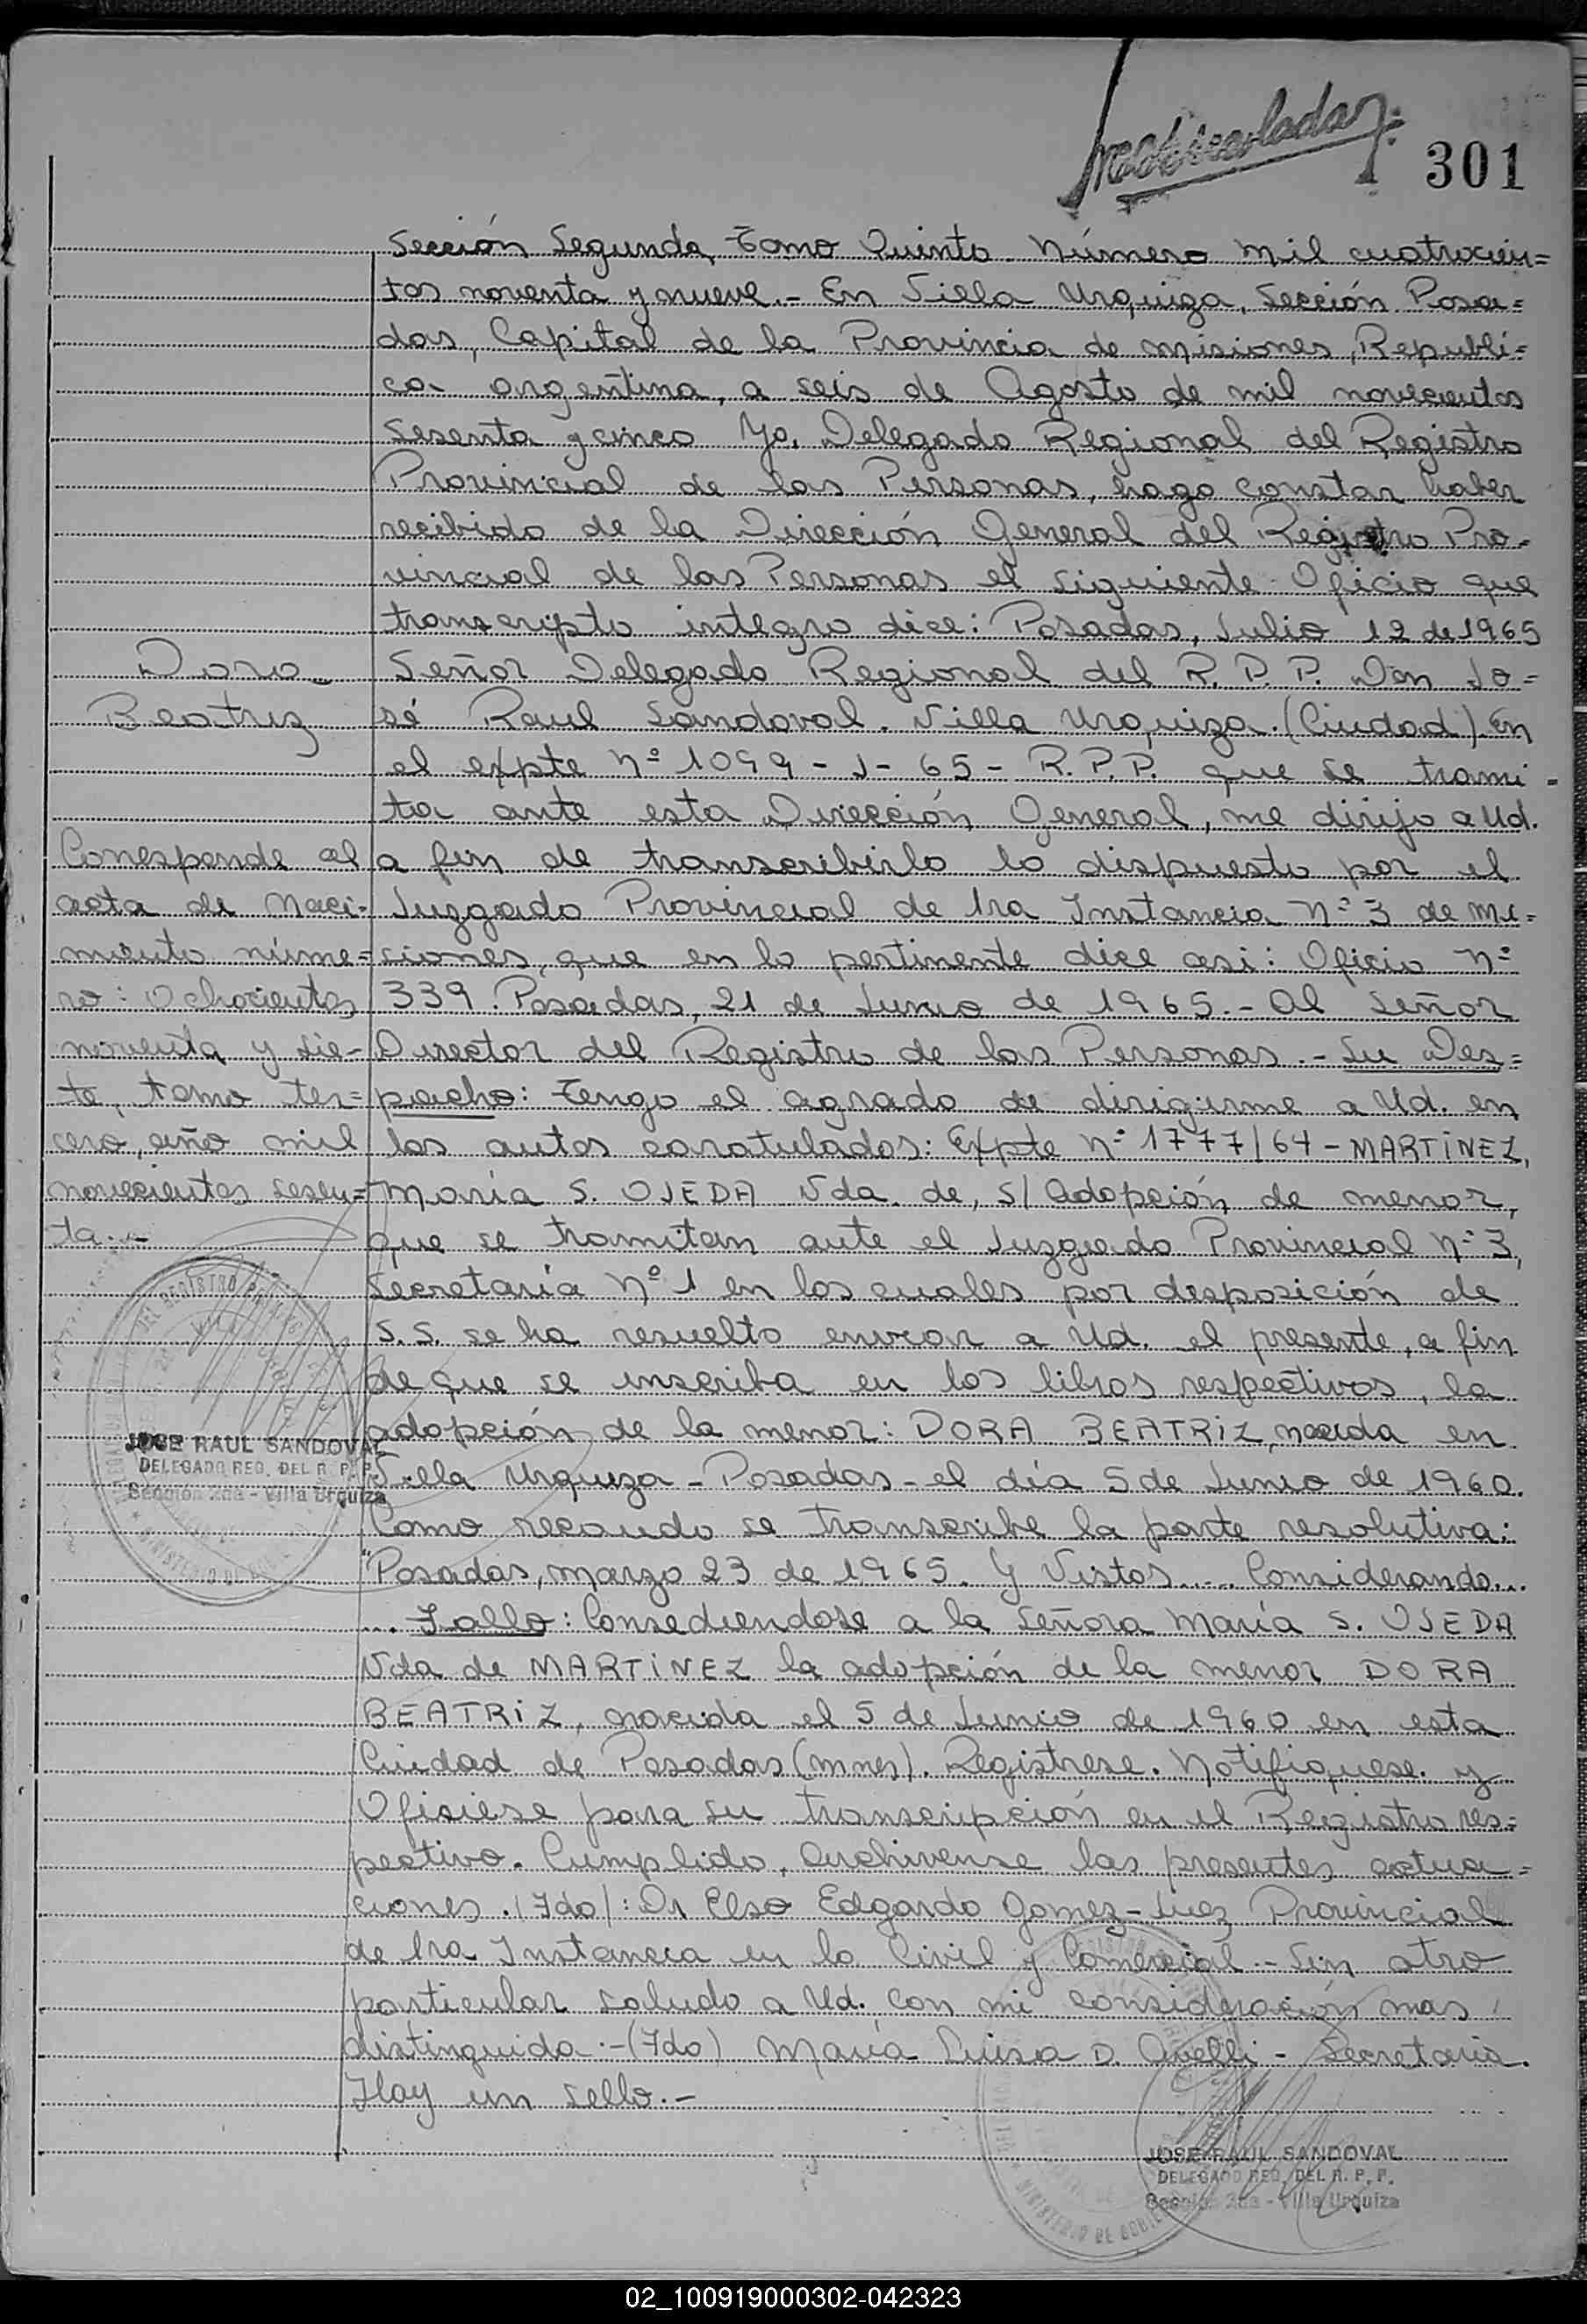 Matriculada
301
Sección Segunda, Tomo Quinto Número mil cuatrocien=
tos noventa y nueve.- En Villa Urquiza, Sección Posa=
das, Capital de la Provincia de Misiones, Republi=
ca argentina, a seis de Agosto de mil novecientos
Sesenta y cinco Yo, Delegado Regional del Registro
Provincial de las Personas, hago constar haber
recibido de la Dirección General del Registro Pro-
vincial de las Personas el siguiente Oficio que
transcripto integro dice: Posadas, Julio 12 de 1965
Señor Delegado Regional del R. P. P. Don Jo=
sé Raul Sandoval. Villa Urquiza. (Ciudad) En
el expte Nº 1099 - J - 65 - R.P.P. que se trami=
ta ante esta Dirección General, me dirijo a Ud.
a fin de transcribirlo lo dispuesto por el
Juzgado Provincial de 1ra Instancia Nº 3 de Mi=
siones, que en lo pertinente dice asi: Oficio Nº
339. Posadas, 21 de Junio de 1965.- Al Señor
Director del Registro de las Personas.- Su Des=
pacho: Tengo el agrado de dirigirme a Ud. en
los autos caratulados: Expte Nº 1777/64 - MARTiNEZ,
María S. OJEDA Vda. de, S/ Adopción de menor,
que se tramitan ante el Juzgado Provincial Nº 3,
Secretaría Nº 1 en los cuales por desposición de
S.S. se ha resuelto enviar a Ud. el presente, a fin
de que se inscriba en los libros respectivos, la
adopción de la menor: DORA BEATRiZ, nacida en
Villa Urquiza - Posadas - el día 5 de Junio de 1960.
Como recaudo se transcribe la parte resolutiva:
"Posadas, marzo 23 de 1965. Y Vistos.... Considerando...
... Fallo: Consediendose a la Señora María S. OJEDA
Vda de MARTiNEZ la adopción de la menor DORA
BEATRiZ, nacida el 5 de Junio de 1960 en esta
Ciudad de Posadas (mnes). Registrese. Notifiquese. y
Ofisiese para su transcripción en el Registro res=
pectivo. Cumplido, archivense las presentes actua=
ciones. (Fdo): Dr Elso Edgardo Gomez - Juez Provincial
de 1ra Instancia en lo Civil y Comercial.- Sin otro
particular saludo a Ud. con mi consideración mas
distinguida.-(Fdo) María Luisa D. - Secretaria.
Hay un sello.-
Dora
Beatriz
Corresponde al
acta de Naci-
miento núme=
ro: Ochocientos
noventa y sie-
te, tomo ter=
cero, año mil
novecientos sesen=
ta.-
JOSE RAUL SANDOVAL
DELEGADO REG. DEL R. P. P.
Sección 2da - Villa Urquiza
JOSE RAUL SANDOVAL
DELEGADO REG. DEL R. P. P.
Sección 2da - Villa Urquiza
02_100919000302-042323